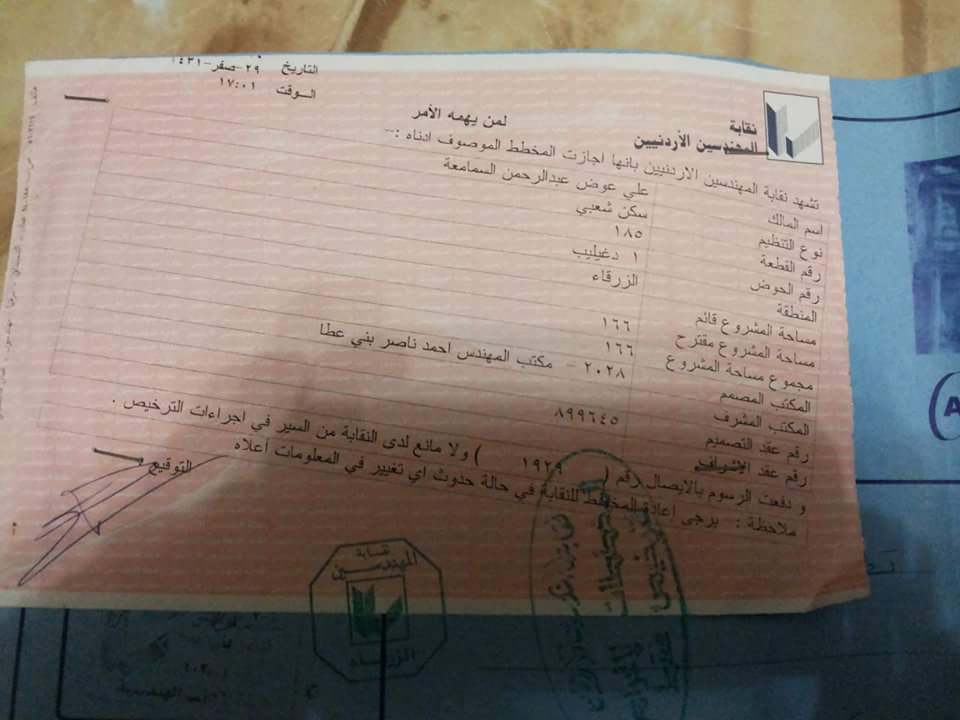 التاريخ ٢٩-صفر-١٤٣١
الوقت ١٧:٠١
نقابة
المهندسين الأردنيين
لمن يهمه الأمر
تشهد نقابة المهندسين الاردنيين بانها اجازت المخطط الموصوف ادناه :-
اسم المالك علي عوض عبدالرحمن السمامعة
نوع التنظيم سكن شعبي
رقم القطعة ١٨٥
رقم الحوض ١ دغيليب
المنطقة الزرقاء
مساحة المشروع قائم
مساحة المشروع مقترح ١٦٦
مجموع مساحة المشروع ١٦٦
المكتب المصمم ٢٠٢٨ - مكتب المهندس احمد ناصر بني عطا
المكتب المشرف
رقم عقد التصميم ٨٩٩٦٤٥
رقم عقد الاشراف
و دفعت الرسوم بالايصال رقم ( ١٩٢٩ ) ولا مانع لدى النقابة من السير في اجراءات الترخيص .
ملاحظة : يرجى اعادة المخطط للنقابة في حالة حدوث اي تغيير في المعلومات أعلاه
التوقيع
نقابة
المهندسين
الزرقاء
A